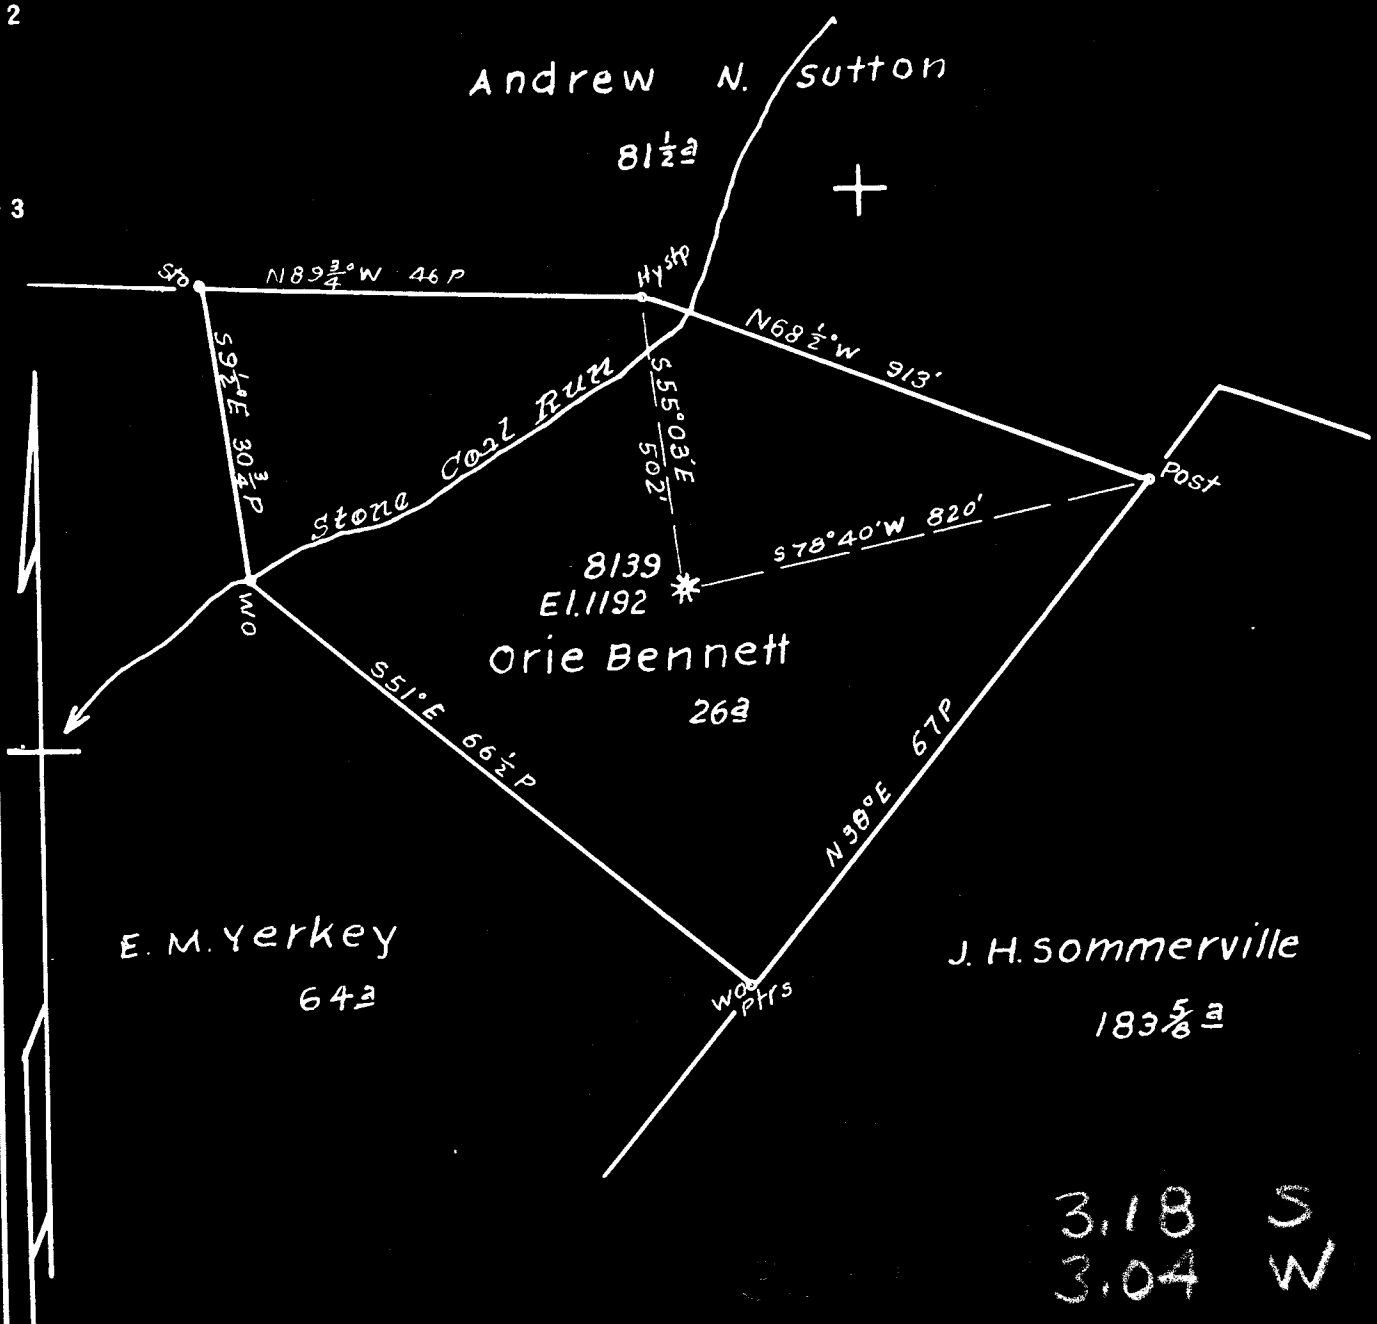 2
Andrew N. Sutton
81 1/2 a
3
Sto
N 89 3/4° W 46 P
Hy stp
N 68 1/2° W 913'
S 9 1/2° E 30 3/4 P
Stone Coal Run
S 55° 03' E
502'
Post
S 78° 40' W 820'
8139
El. 1192
WO
Orie Bennett
26 a
S 51° E 66 1/2 P
N 38° E 67 P
E. M. Yerkey
64 a
J. H. Sommerville
183 5/8 a
WO
Ptrs
3.18 S
3.04 W